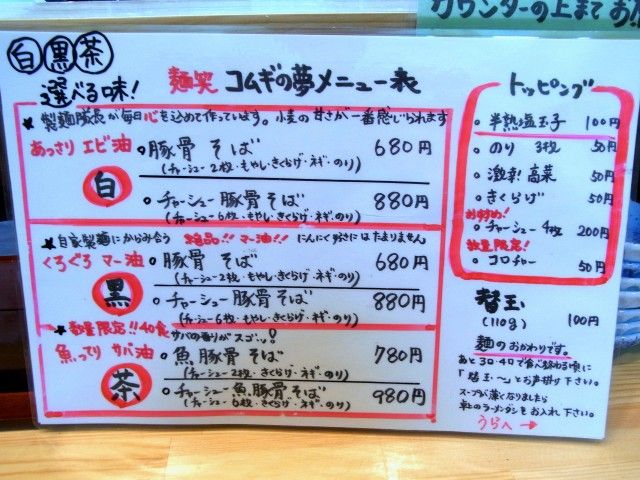 カウンターの上までお
白黒茶
選べる味!
麺笑 コムギの夢メニュー表
★製麺隊長が毎日心を込めて作っています。小麦の甘さが一番感じられます
あっさり エビ油
白
・豚骨 そば 680円
(チャーシュー2枚・もやし・きくらげ・ネギ・のり)
・チャーシュー 豚骨 そば 880円
(チャーシュー6枚・もやし・きくらげ・ネギ・のり)
★自家製麺にからみ合う 絶品!! マー油!! にんにく好きにはたまりません
くろぐろ マー油
黒
・豚骨 そば 680円
(チャーシュー2枚・もやし・きくらげ・ネギ・のり)
・チャーシュー 豚骨 そば 880円
(チャーシュー6枚・もやし・きくらげ・ネギ・のり)
★数量限定!!40食 サバの香りがスゴッ!
魚ってり サバ油
茶
・魚豚骨 そば 780円
(チャーシュー2枚・きくらげ・ネギ・のり)
・チャーシュー 魚豚骨 そば 980円
(チャーシュー6枚・きくらげ・ネギ・のり)
トッピング
・半熟塩玉子 100円
・のり 3枚 50円
・激辛!高菜 50円
・きくらげ 50円
おすすめ!
・チャーシュー 4枚 200円
数量限定!
・コロチャー 50円
替玉
(110g) 100円
麺のおかわりです。
あと30〜40で食べ終わる頃に
「替玉〜」とお声掛け下さい。
スープが薄くなりましたら
卓上のラーメンダシをお入れ下さい。
うらへ→